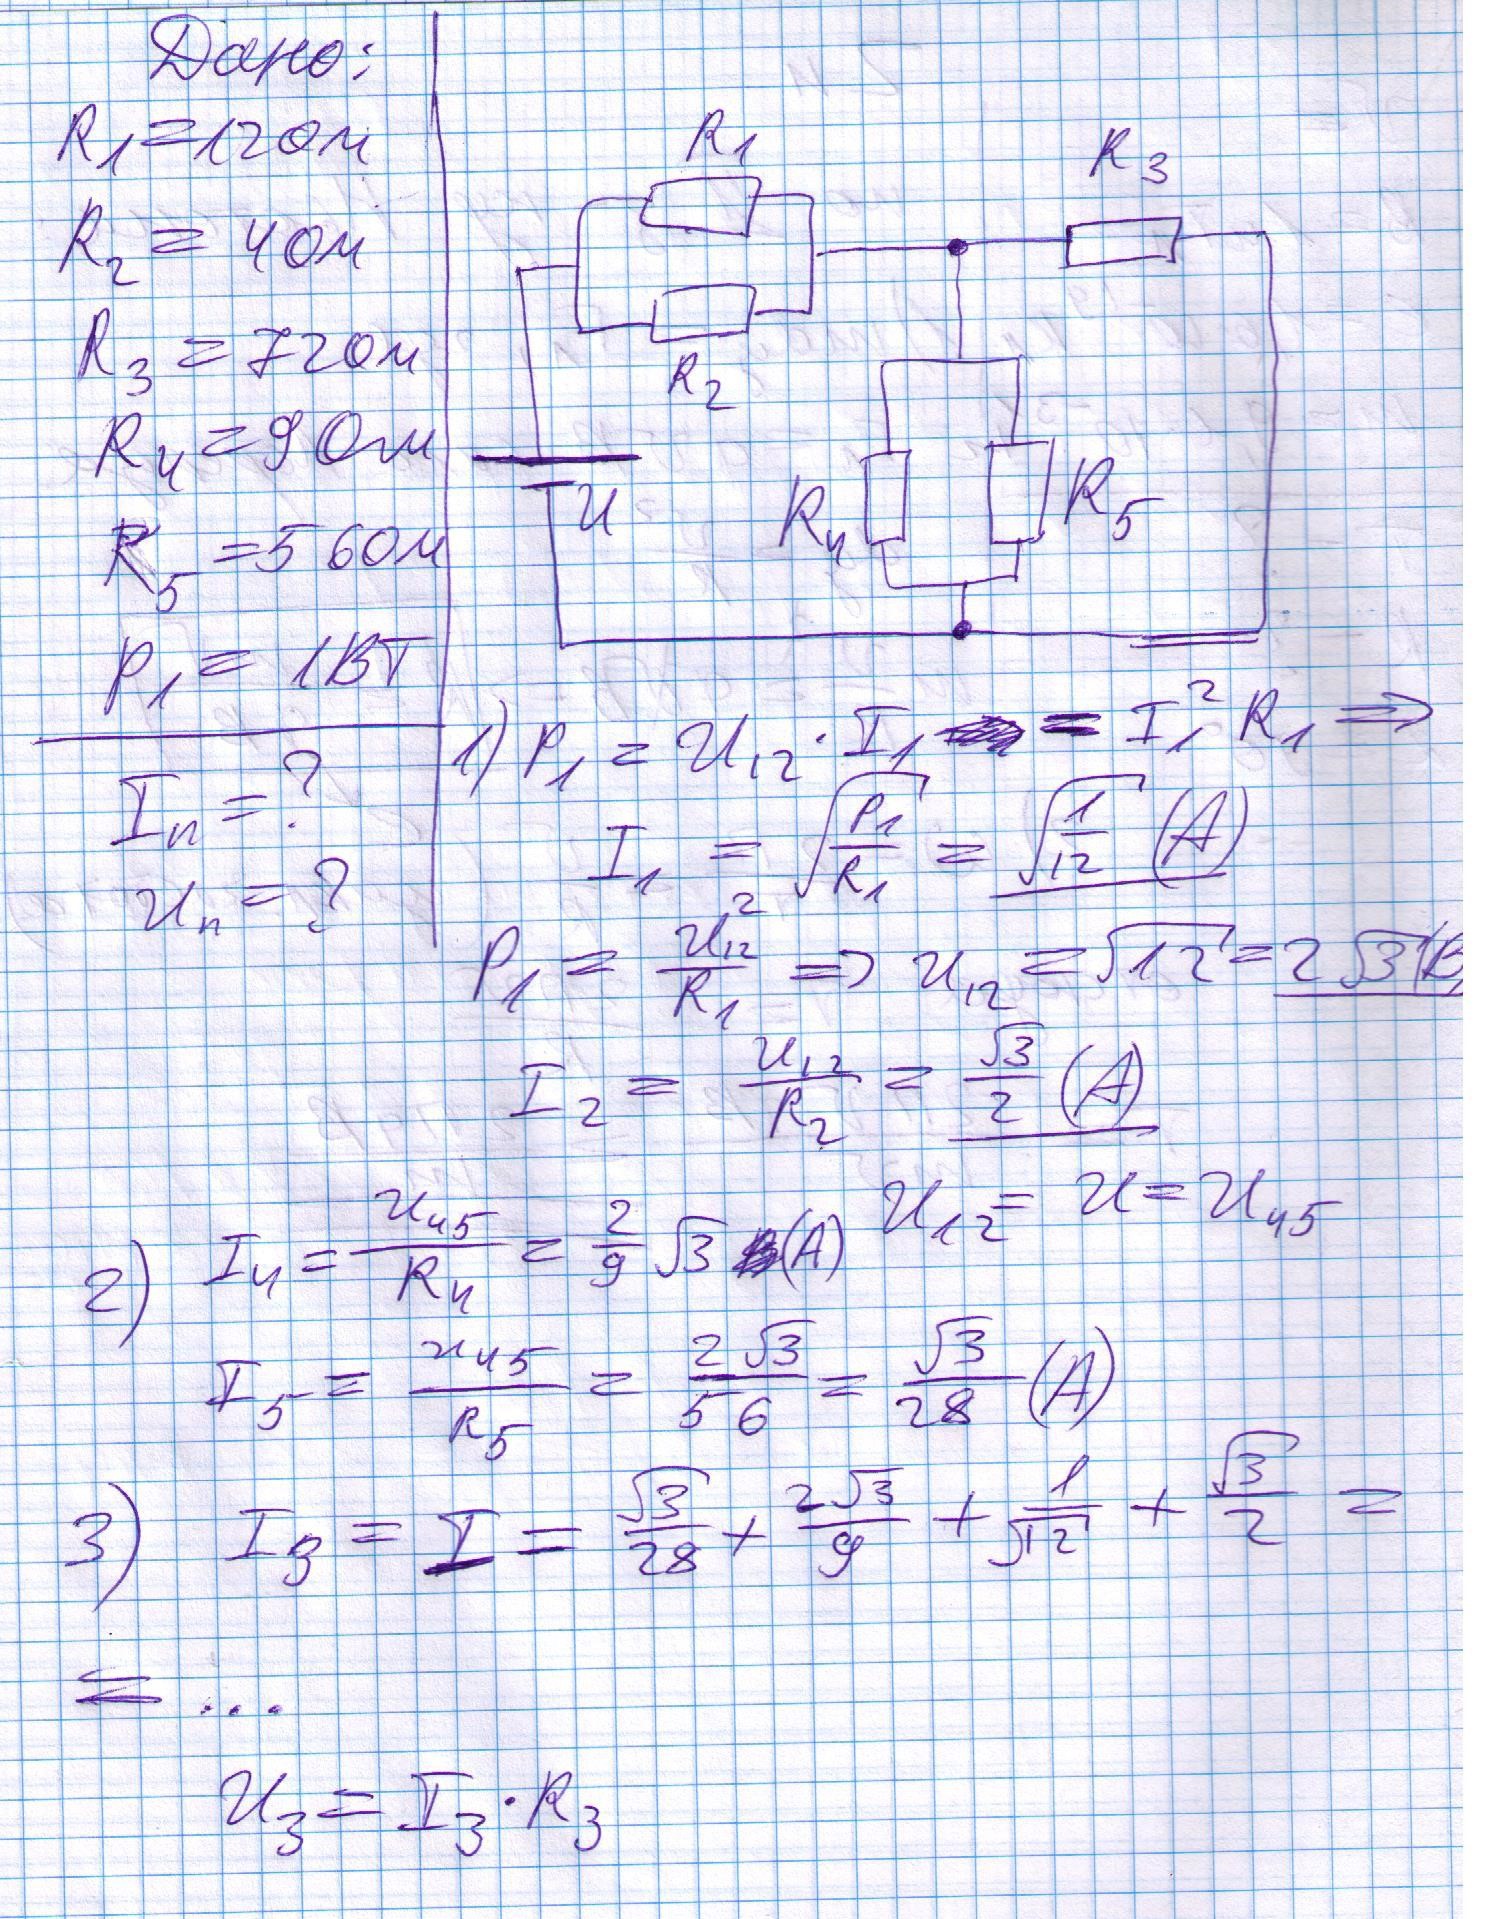 Дано:
R1 = 12 Ом
R2 = 4 Ом
R3 = 72 Ом
R4 = 9 Ом
R5 = 56 Ом
P1 = 1 Вт
Iп = ?
Uп = ?
R1
R3
R2
U
R4
R5
1) P1 = U12 · I1 = I1² R1 ⇒
I1 = √(P1/R1) = √(1/12) (А)
P1 = U12²/R1 ⇒ U12 = √12 = 2√3 (В)
I2 = U12/R2 = √3/2 (А)
U12 = U = U45
2) I4 = U45/R4 = 2/9 √3 (А)
I5 = U45/R5 = 2√3/56 = √3/28 (А)
3) I3 = I = √3/28 + 2√3/9 + 1/√12 + √3/2 =
= ...
U3 = I3 · R3